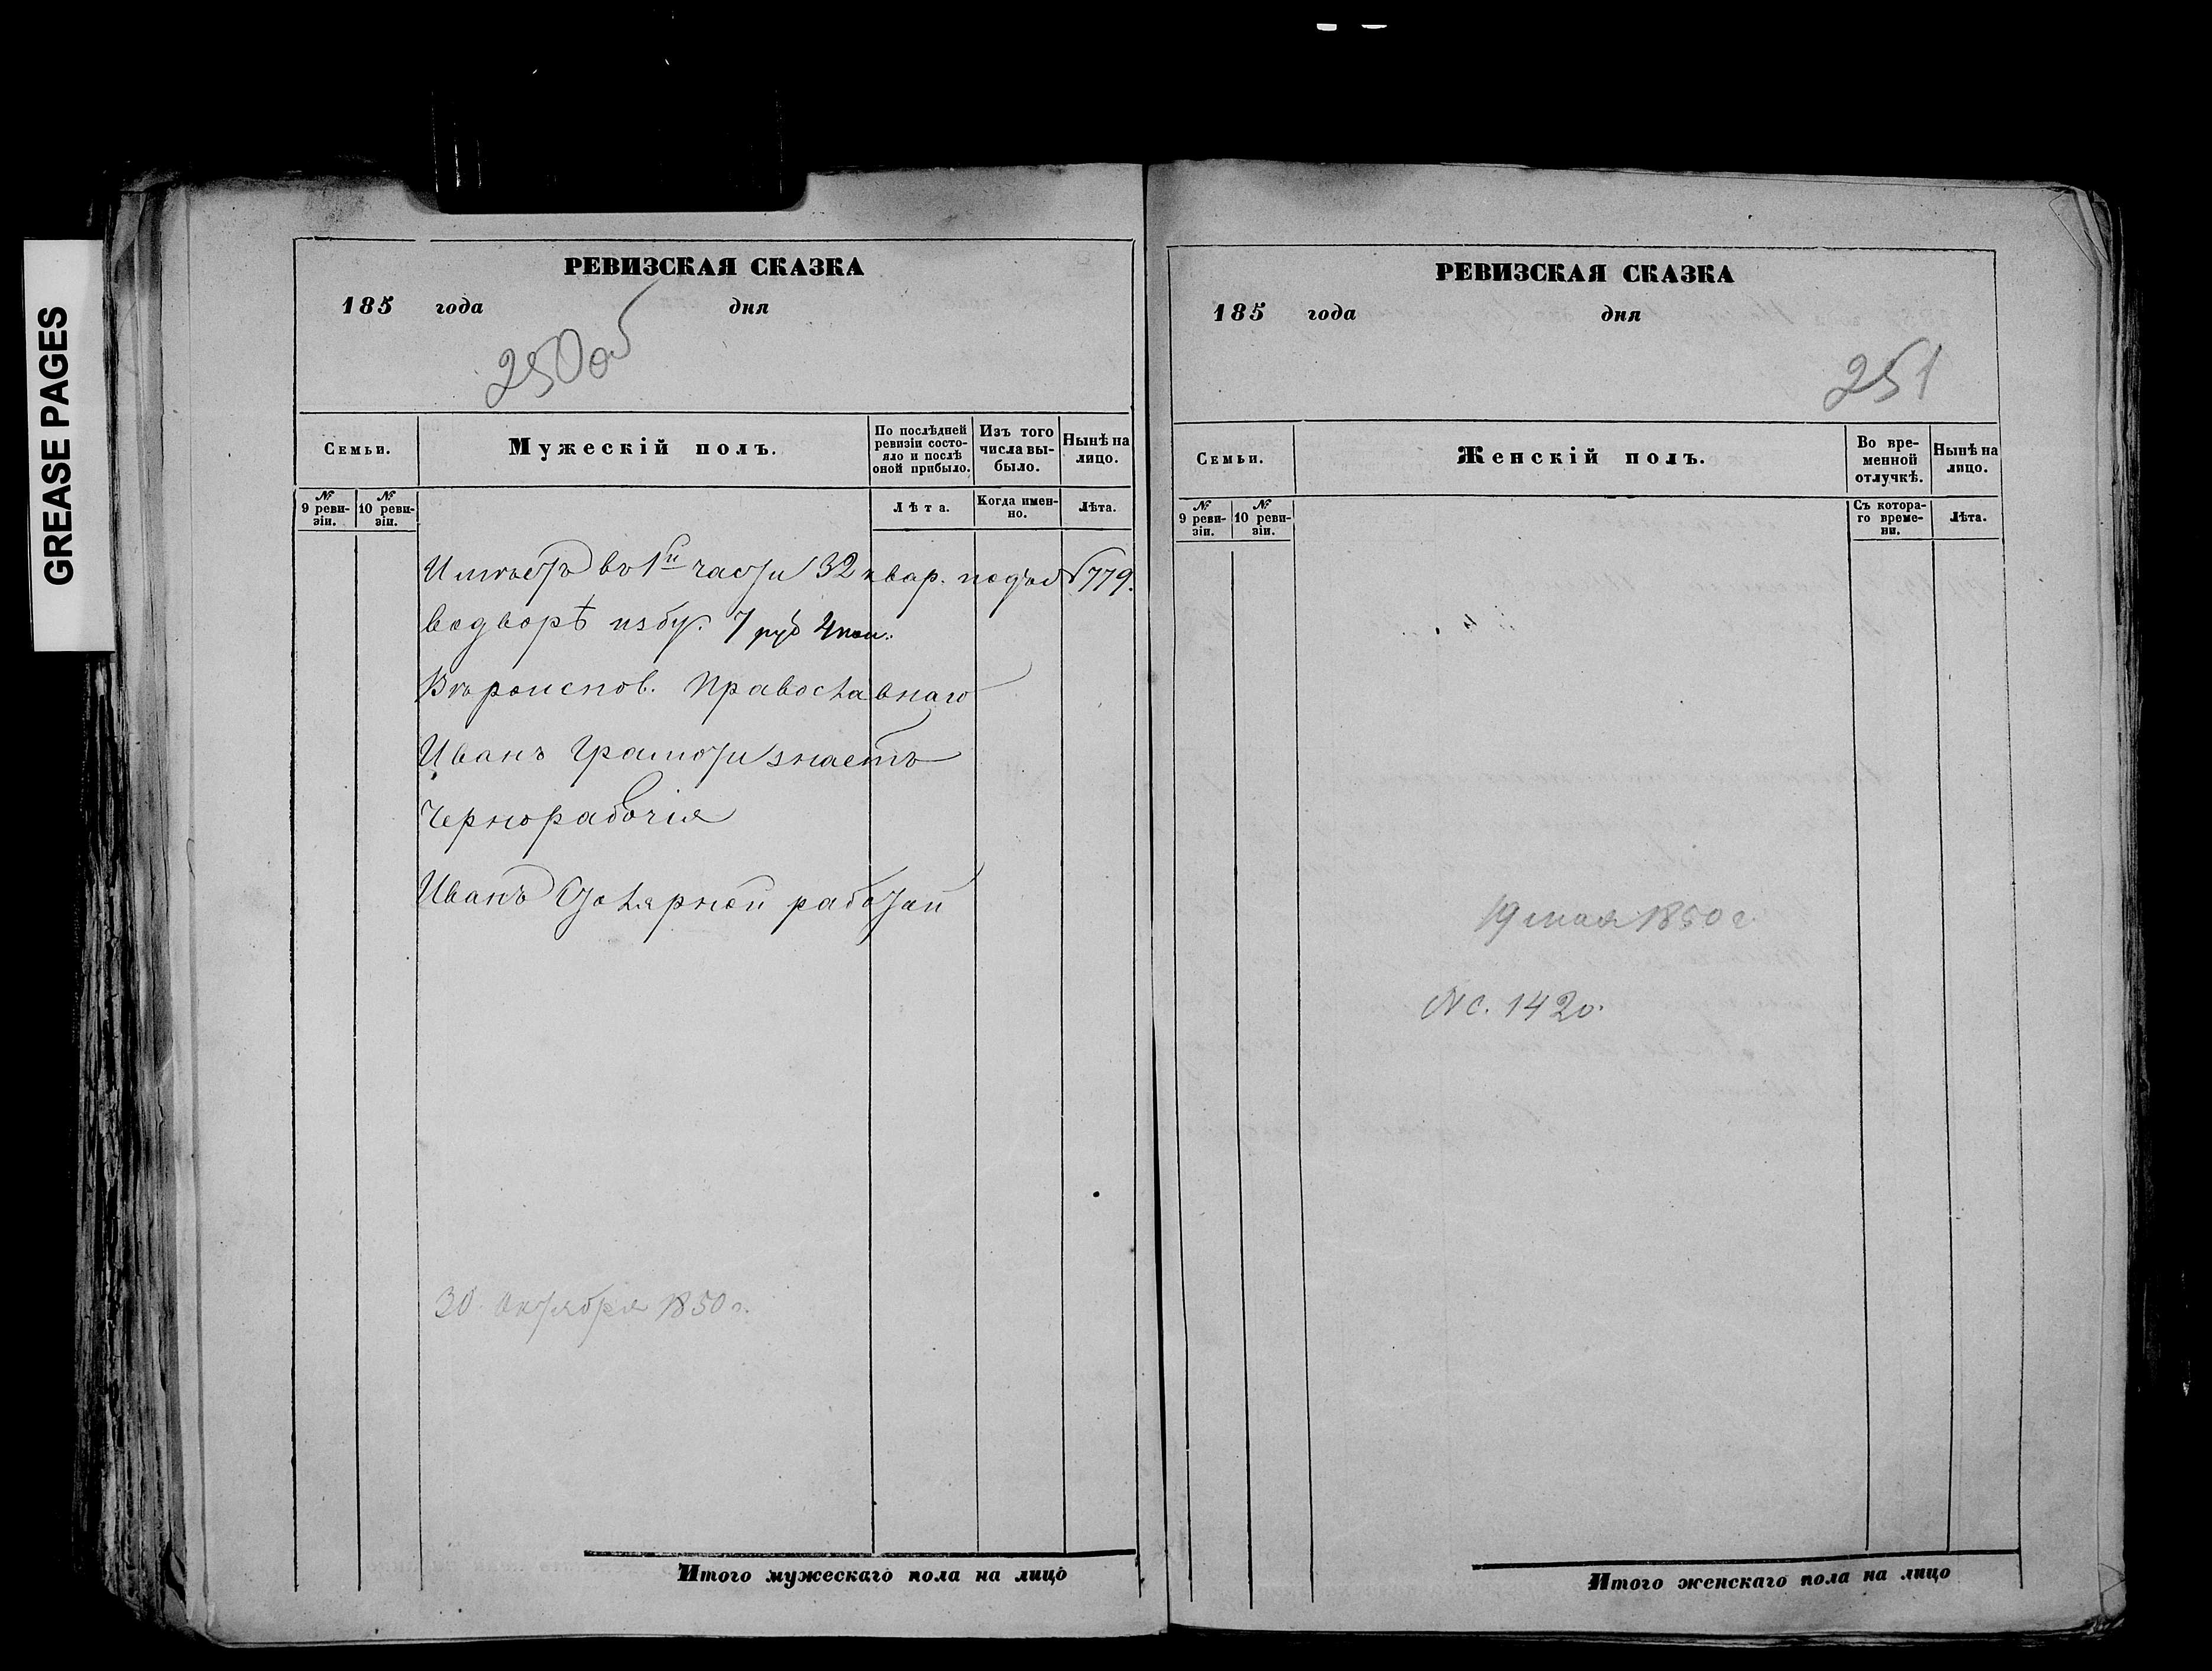 GREASE PAGES
РЕВИЗСКАЯ СКАЗКА
185 года дня
250 об
Семьи.
Мужескій полъ.
По послѣдней ревизіи состояло и послѣ оной прибыло.
Изъ того числа выбыло.
Нынѣ на лицо.
№ 9 ревизіи.
№ 10 ревизіи.
Лѣта.
Когда именно.
Лѣта.
Имѣетъ въ 1й части 32 квар. подъ № 779.
водворѣ избу. 7 руб 4 коп.
Вѣроиспов. Православнаго
Иванъ Грамоти знаетъ
Чернорабочія
Иванъ Столярной работай
30 Октября 1850 г.
Итого мужескаго пола на лицо
РЕВИЗСКАЯ СКАЗКА
185 года дня
251
Семьи.
Женскій полъ.
Во временной отлучкѣ.
Нынѣ на лицо.
№ 9 ревизіи.
№ 10 ревизіи.
Съ котораго времени.
Лѣта.
19 мая 1850 г.
№ 1420.
Итого женскаго пола на лицо